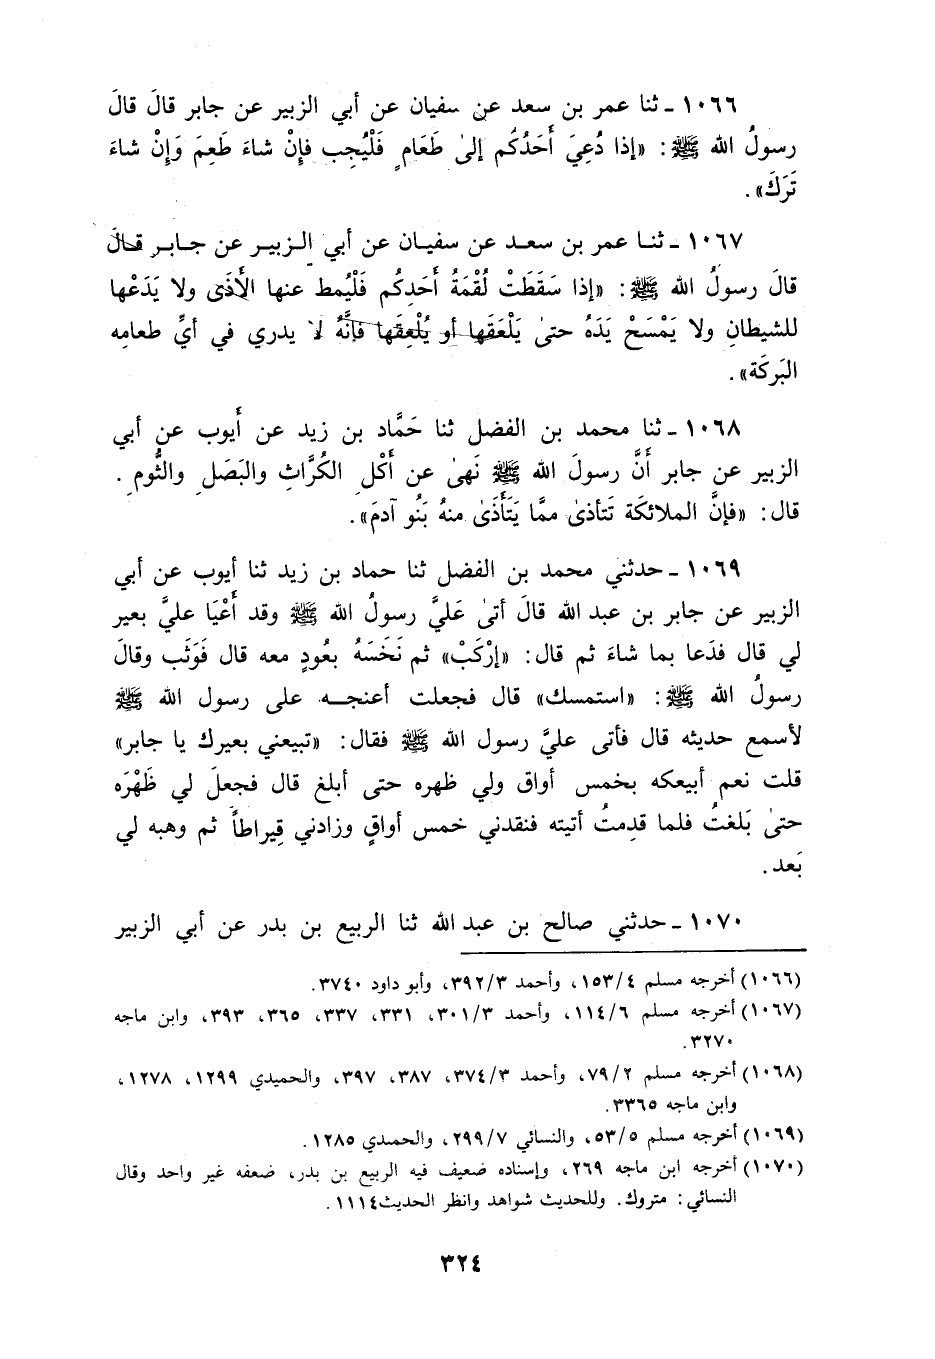 ١٠٦٦ ـ ثنا عمر بن سعد عن سفيان عن أبي الزبير عن جابر قالَ قالَ
رسولُ الله ﷺ : «إذا دُعِيَ أَحَدُكُم إلىٰ طَعَامٍ فَلْيُجِب فإِنْ شاءَ طَعِمَ وَإِنْ شاءَ
تَرَكَ» .
١٠٦٧ ـ ثنـا عمر بن سعـد عن سفيـان عن أبي الـزبيـر عن جـابـر قـالَ
قالَ رسولُ الله ﷺ : «إذا سَقَطَتْ لُقْمَةُ أَحَدِكُم فَلْيُمط عنها الأَذَى ولا يَدَعْها
للشيطانِ ولا يَمْسَحْ يَدَهُ حتىٰ يَلْعَقَها أو يُلْعِقَها فإنَّهُ لا يدري في أيِّ طعامِه
البَركَة» .
١٠٦٨ ـ ثنا محمد بن الفضل ثنا حَمَّاد بن زيد عن أَيوب عن أبي
الزبير عن جابر أَنَّ رسولَ الله ﷺ نَهىٰ عن أَكْلِ الكُرَّاثِ والبَصَلِ والثُّومِ .
قال : «فإنَّ الملائكَة تَتأذىٰ ممَّا يَتَأَذَىٰ منهُ بَنُو آدمَ» .
١٠٦٩ ـ حدثني محمد بن الفضل ثنا حماد بن زيد ثنا أيوب عن أبي
الزبير عن جابر بن عبد الله قالَ أتىٰ عَليَّ رسولُ الله ﷺ وقد أَعْيَا عليَّ بعير
لي قال فدَعا بما شاءَ ثم قال : «إرْكَبْ» ثم نَخَسَهُ بعُودٍ معه قال فَوَثَب وقالَ
رسولُ الله ﷺ : «استمسك» قال فجعلت أعنجـه على رسول الله ﷺ
لأسمع حديثه قال فأتى عليَّ رسول الله ﷺ فقال : «تبيعني بعيرك يا جابر»
قلت نعم أبيعكه بخمس أواق ولي ظهره حتى أبلغ قال فجعلَ لي ظَهْرَه
حتىٰ بَلغتُ فلما قدِمتُ أتيته فنقدني خمس أواقٍ وزادني قِيراطاً ثم وهبه لي
بَعد .
١٠٧٠ ـ حدثني صالح بن عبد الله ثنا الربيع بن بدر عن أبي الزبير
(١٠٦٦) أخرجه مسلم ١٥٣/٤، وأحمد ٣٩٢/٣، وأبو داود ٣٧٤٠.
(١٠٦٧) أخرجه مسلم ١١٤/٦، وأحمد ٣٠١/٣، ٣٣١، ٣٣٧، ٣٦٥، ٣٩٣، وابن ماجه
٣٢٧٠.
(١٠٦٨) أخرجه مسلم ٧٩/٢، وأحمد ٣٧٤/٣، ٣٨٧، ٣٩٧، والحميدي ١٢٩٩، ١٢٧٨،
وابن ماجه ٣٣٦٥.
(١٠٦٩) أخرجه مسلم ٥٣/٥، والنسائي ٢٩٩/٧، والحمدي ١٢٨٥.
(١٠٧٠) أخرجه ابن ماجه ٢٦٩، وإسناده ضعيف فيه الربيع بن بدر، ضعفه غير واحد وقال
النسائي : متروك. وللحديث شواهد وانظر الحديث١١١٤.
٣٢٤